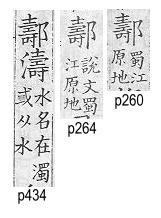 𨞪
濤
水名在濁
或从水
p434
𨞪
說文蜀
江原地
p264
𨞪
蜀江
原地
p260